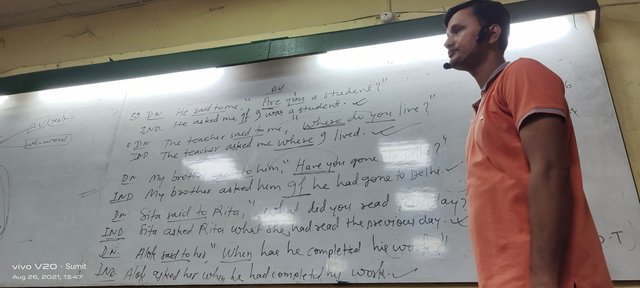 AV
Eg DN He said to me, "Are you a student?"
IND. He asked me if I was a student.
DN The teacher said to me, "Where do you live?"
IND The teacher asked me where I lived.
DN My brother to him, "Have you gone ?"
IND My brother asked him If he had gone to Delhi.
DN Sita said to Rita, "What did you read day?
IND Sita asked Rita what she had read the previous day.
DN. Alok said to her, "When has he completed his work"
IND. Alok asked her when he had completed his work.
wh-word
vivo V20 · Sumit
Aug 26, 2021, 13:47